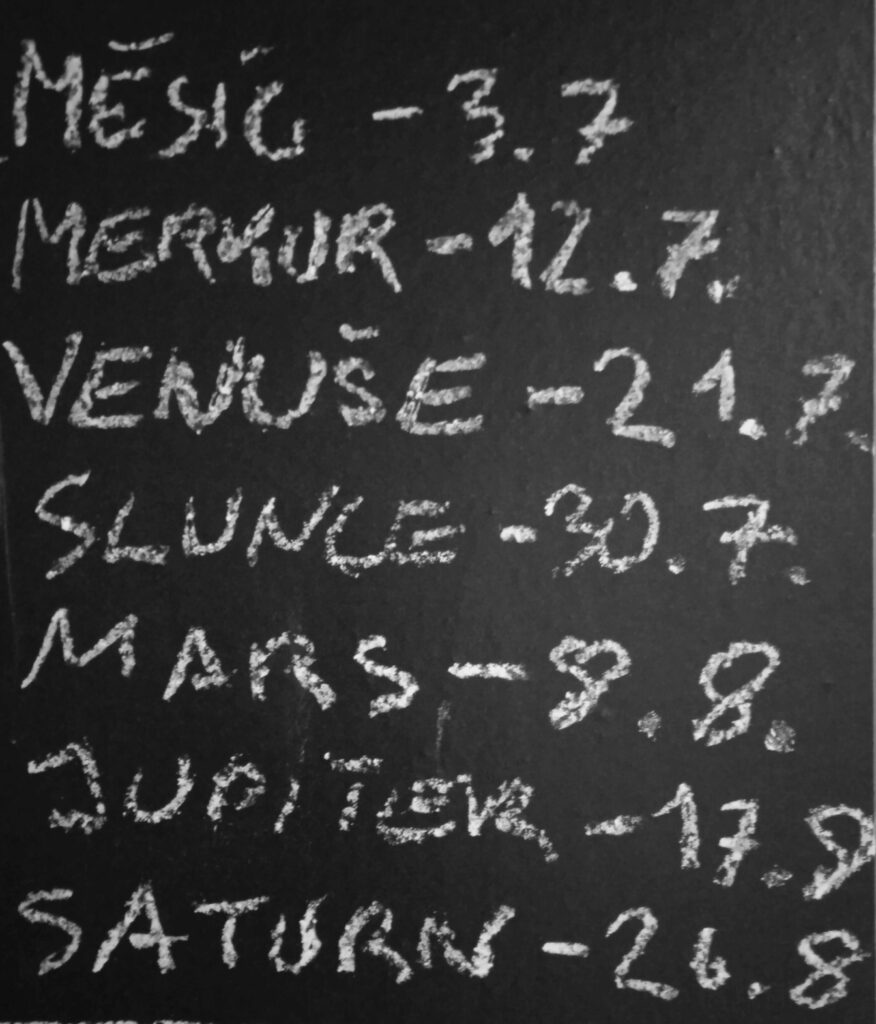 MĚSÍC - 3.7
MERKUR - 12.7.
VENUŠE - 21.7.
SLUNCE - 30.7.
MARS - 8.8.
JUPITER - 17.8
SATURN - 26.8